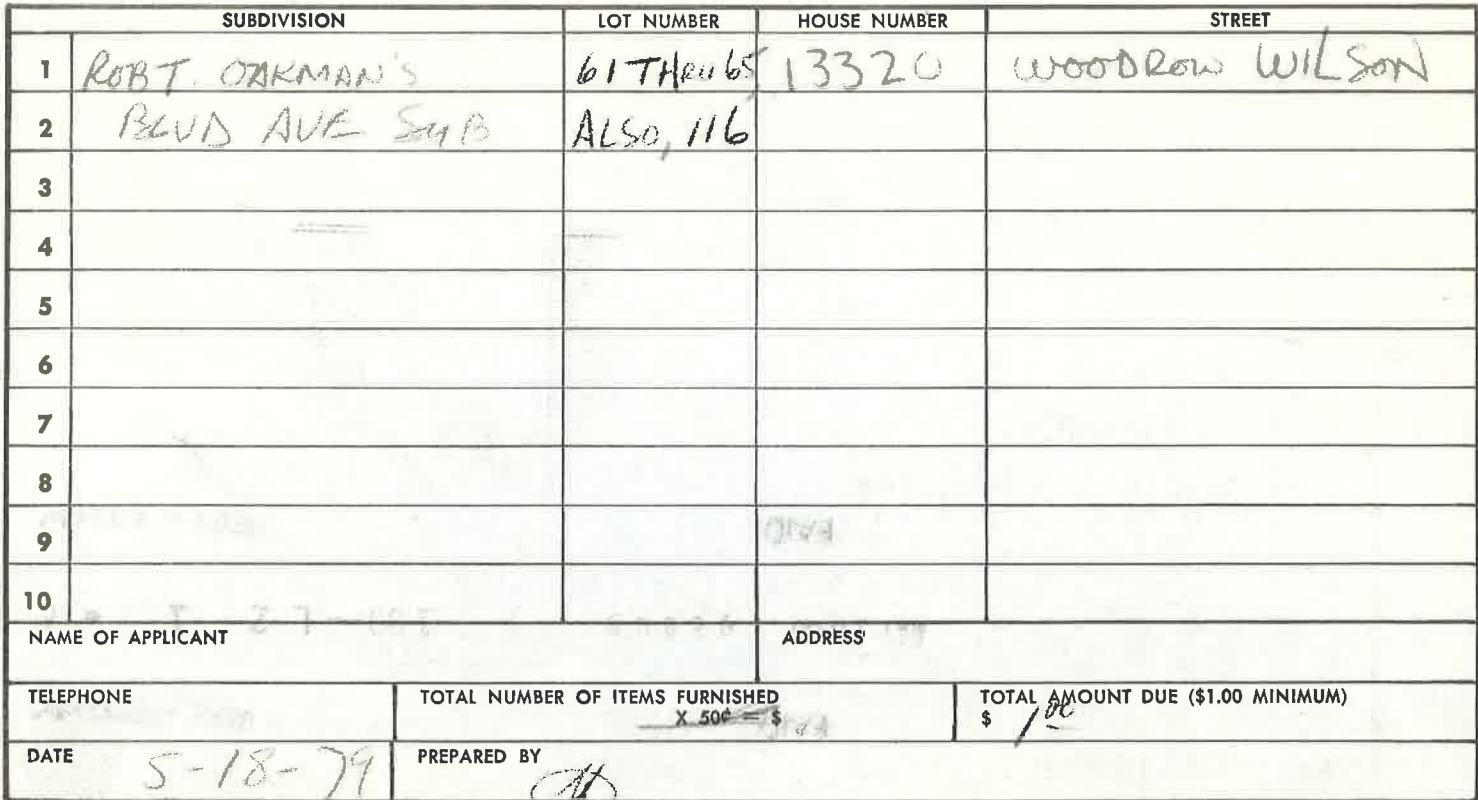 SUBDIVISION LOT NUMBER HOUSE NUMBER STREET
1 ROBT. OAKMAN'S 61 THRU 65, 13320 WOODROW WILSON
2 BLVD AVE SUB ALSO, 116
3
4
5
6
7
8
9
10
NAME OF APPLICANT ADDRESS
TELEPHONE TOTAL NUMBER OF ITEMS FURNISHED TOTAL AMOUNT DUE ($1.00 MINIMUM)
X 50¢ = $ $ 1.00
DATE 5-18-79 PREPARED BY